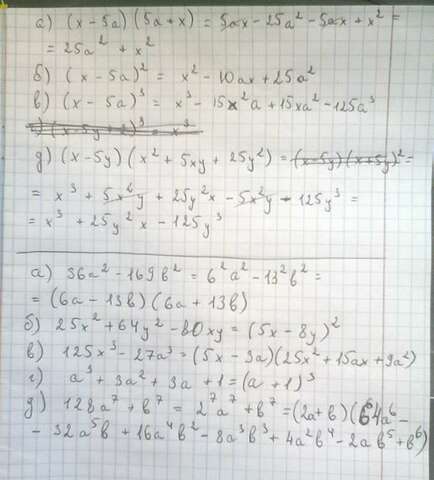 а) (x - 5a) (5a + x) = 5ax - 25a² - 5ax + x² =
= 25a² + x²
б) (x - 5a)² = x² - 10ax + 25a²
в) (x - 5a)³ = x³ - 15x²a + 15xa² - 125a³
г) (x - 5y + 2)³ = x³
д) (x - 5y) (x² + 5xy + 25y²) = (x - 5y) (x + 5y)² =
= x³ + 5x²y + 25y²x - 5x²y - 125y³ =
= x³ + 25y²x - 125y³
а) 36a² - 169b² = 6²a² - 13²b² =
= (6a - 13b) (6a + 13b)
б) 25x² + 64y² - 80xy = (5x - 8y)²
в) 125x³ - 27a³ = (5x - 3a) (25x² + 15ax + 9a²)
г) a³ + 3a² + 3a + 1 = (a + 1)³
д) 128a⁷ + b⁷ = 2⁷a⁷ + b⁷ = (2a + b) (64a⁶ -
- 32a⁵b + 16a⁴b² - 8a³b³ + 4a²b⁴ - 2ab⁵ + b⁶)